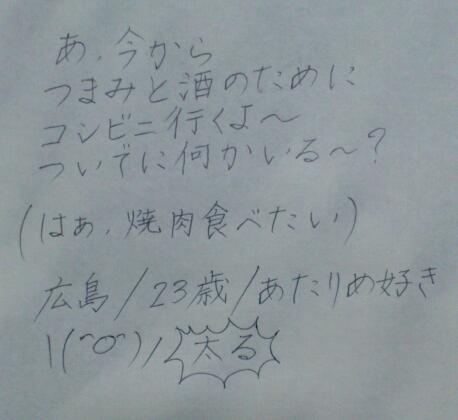 あ、今から
つまみと酒のために
コンビニ行くよ～
ついでに何かいる～?
(はぁ、焼肉食べたい)
広島/23歳/あたりめ好き
\(^O^)/太る